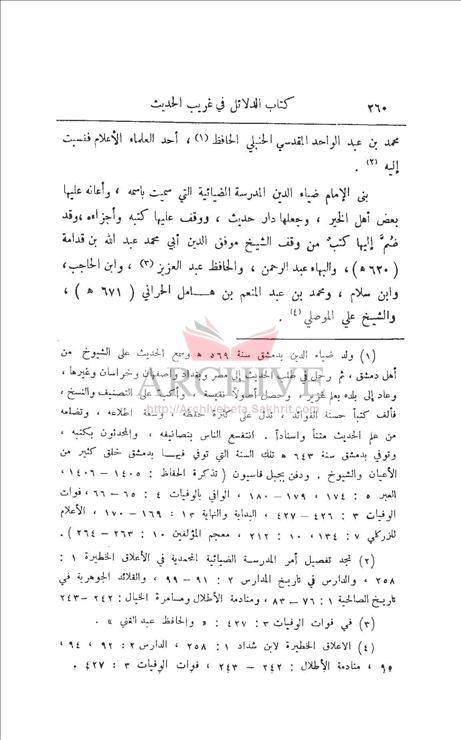 ٣٦٠ كتاب الدلائل في غريب الحديث
محمد بن عبد الواحد المقدسي الحنبلي الحافظ (١) ، أحد العلماء الأعلام فنسبت
إليه (٢) .
بنى الإمام ضياء الدين المدرسة الضيائية التي سميت باسمه ، وأعانه عليها
بعض أهل الخير ، وجعلها دار حديث ، ووقف عليها كتبه وأجزاءه ، وقد
ضُمَّ إليها كتبٌ من وقف الشيخ موفق الدين أبي محمد عبد الله بن قدامة
( ٦٢٠ ه ) ، والبهاء عبد الرحمن ، والحافظ عبد العزيز (٣) ، وابن الحاجب ،
وابن سلام ، ومحمد بن عبد المنعم بن هـامل الحراني ( ٦٧١ ه ) ،
والشيخ علي الموصلي (٤) .
(١) ولد ضياء الدين بدمشق سنة ٥٦٩ ه وسمع الحديث على الشيوخ من
أهل دمشق ، ثم رحل في طلب الحديث إلى مصر وبغداد واصفهان وخراسان وغيرها ،
وعاد إلى بلده بعلم غزير ، وحصل أصولاً نفيسة وأكب على التصنيف والنسخ ،
فألف كتباً حسنة الفوائد ، تدل على كثرة حفظه ، وسعة اطلاعه ، وتضلعه
من علم الحديث متناً واسناداً . انتفسع الناس بتصانيفه ، والمحدثون بكتبه ،
وتوفي بدمشق سنة ٦٤٣ ه تلك السنة التي توفي فيها بدمشق خلق كثير من
الأعيان والشيوخ . ودفن بجبل قاسيون ( تذكرة الحفاظ : ١٤٠٥ - ١٤٠٦ ،
العبر ٥ : ١٧٤ ، ١٧٩ - ١٨٠ ، الوافي بالوفيات ٤ : ٦٥ - ٦٦ ، فوات
الوفيات ٣ : ٤٢٦ - ٤٢٧ ، البداية والنهاية ١٣ : ١٦٩ - ١٧٠ ، الأعلام
للزركلي ٧ : ١٣٤ ، ١٠ : ٢١٢ ، معجم المؤلفين ١٠ : ٢٦٣ - ٢٦٤ ) .
(٢) تجد تفصيل أمر المدرسة الضيائية المحمدية في الأعلاق الخطيرة ١ :
٢٥٨ ، والدارس في تاريخ المدارس ٢ : ٩١ - ٩٩ ، والقلائد الجوهرية في
تاريخ الصالحية ١ : ٧٦ - ٨٣ ، ومنادمة الأطلال ومسامرة الخيال : ٢٤٢ - ٢٤٣
(٣) في فوات الوفيات ٣ : ٤٢٧ : « والحافظ عبد الغني » .
(٤) الاعلاق الخطيرة لابن شداد ١ : ٢٥٨ ، الدارس ٢ : ٩٢ ، ٩٤ ،
٩٥ ، منادمة الأطلال : ٢٤٢ - ٢٤٣ ، فوات الوفيات ٣ : ٤٢٧ .
ARCHIVE
http://Archivebeta.Sakhrit.com